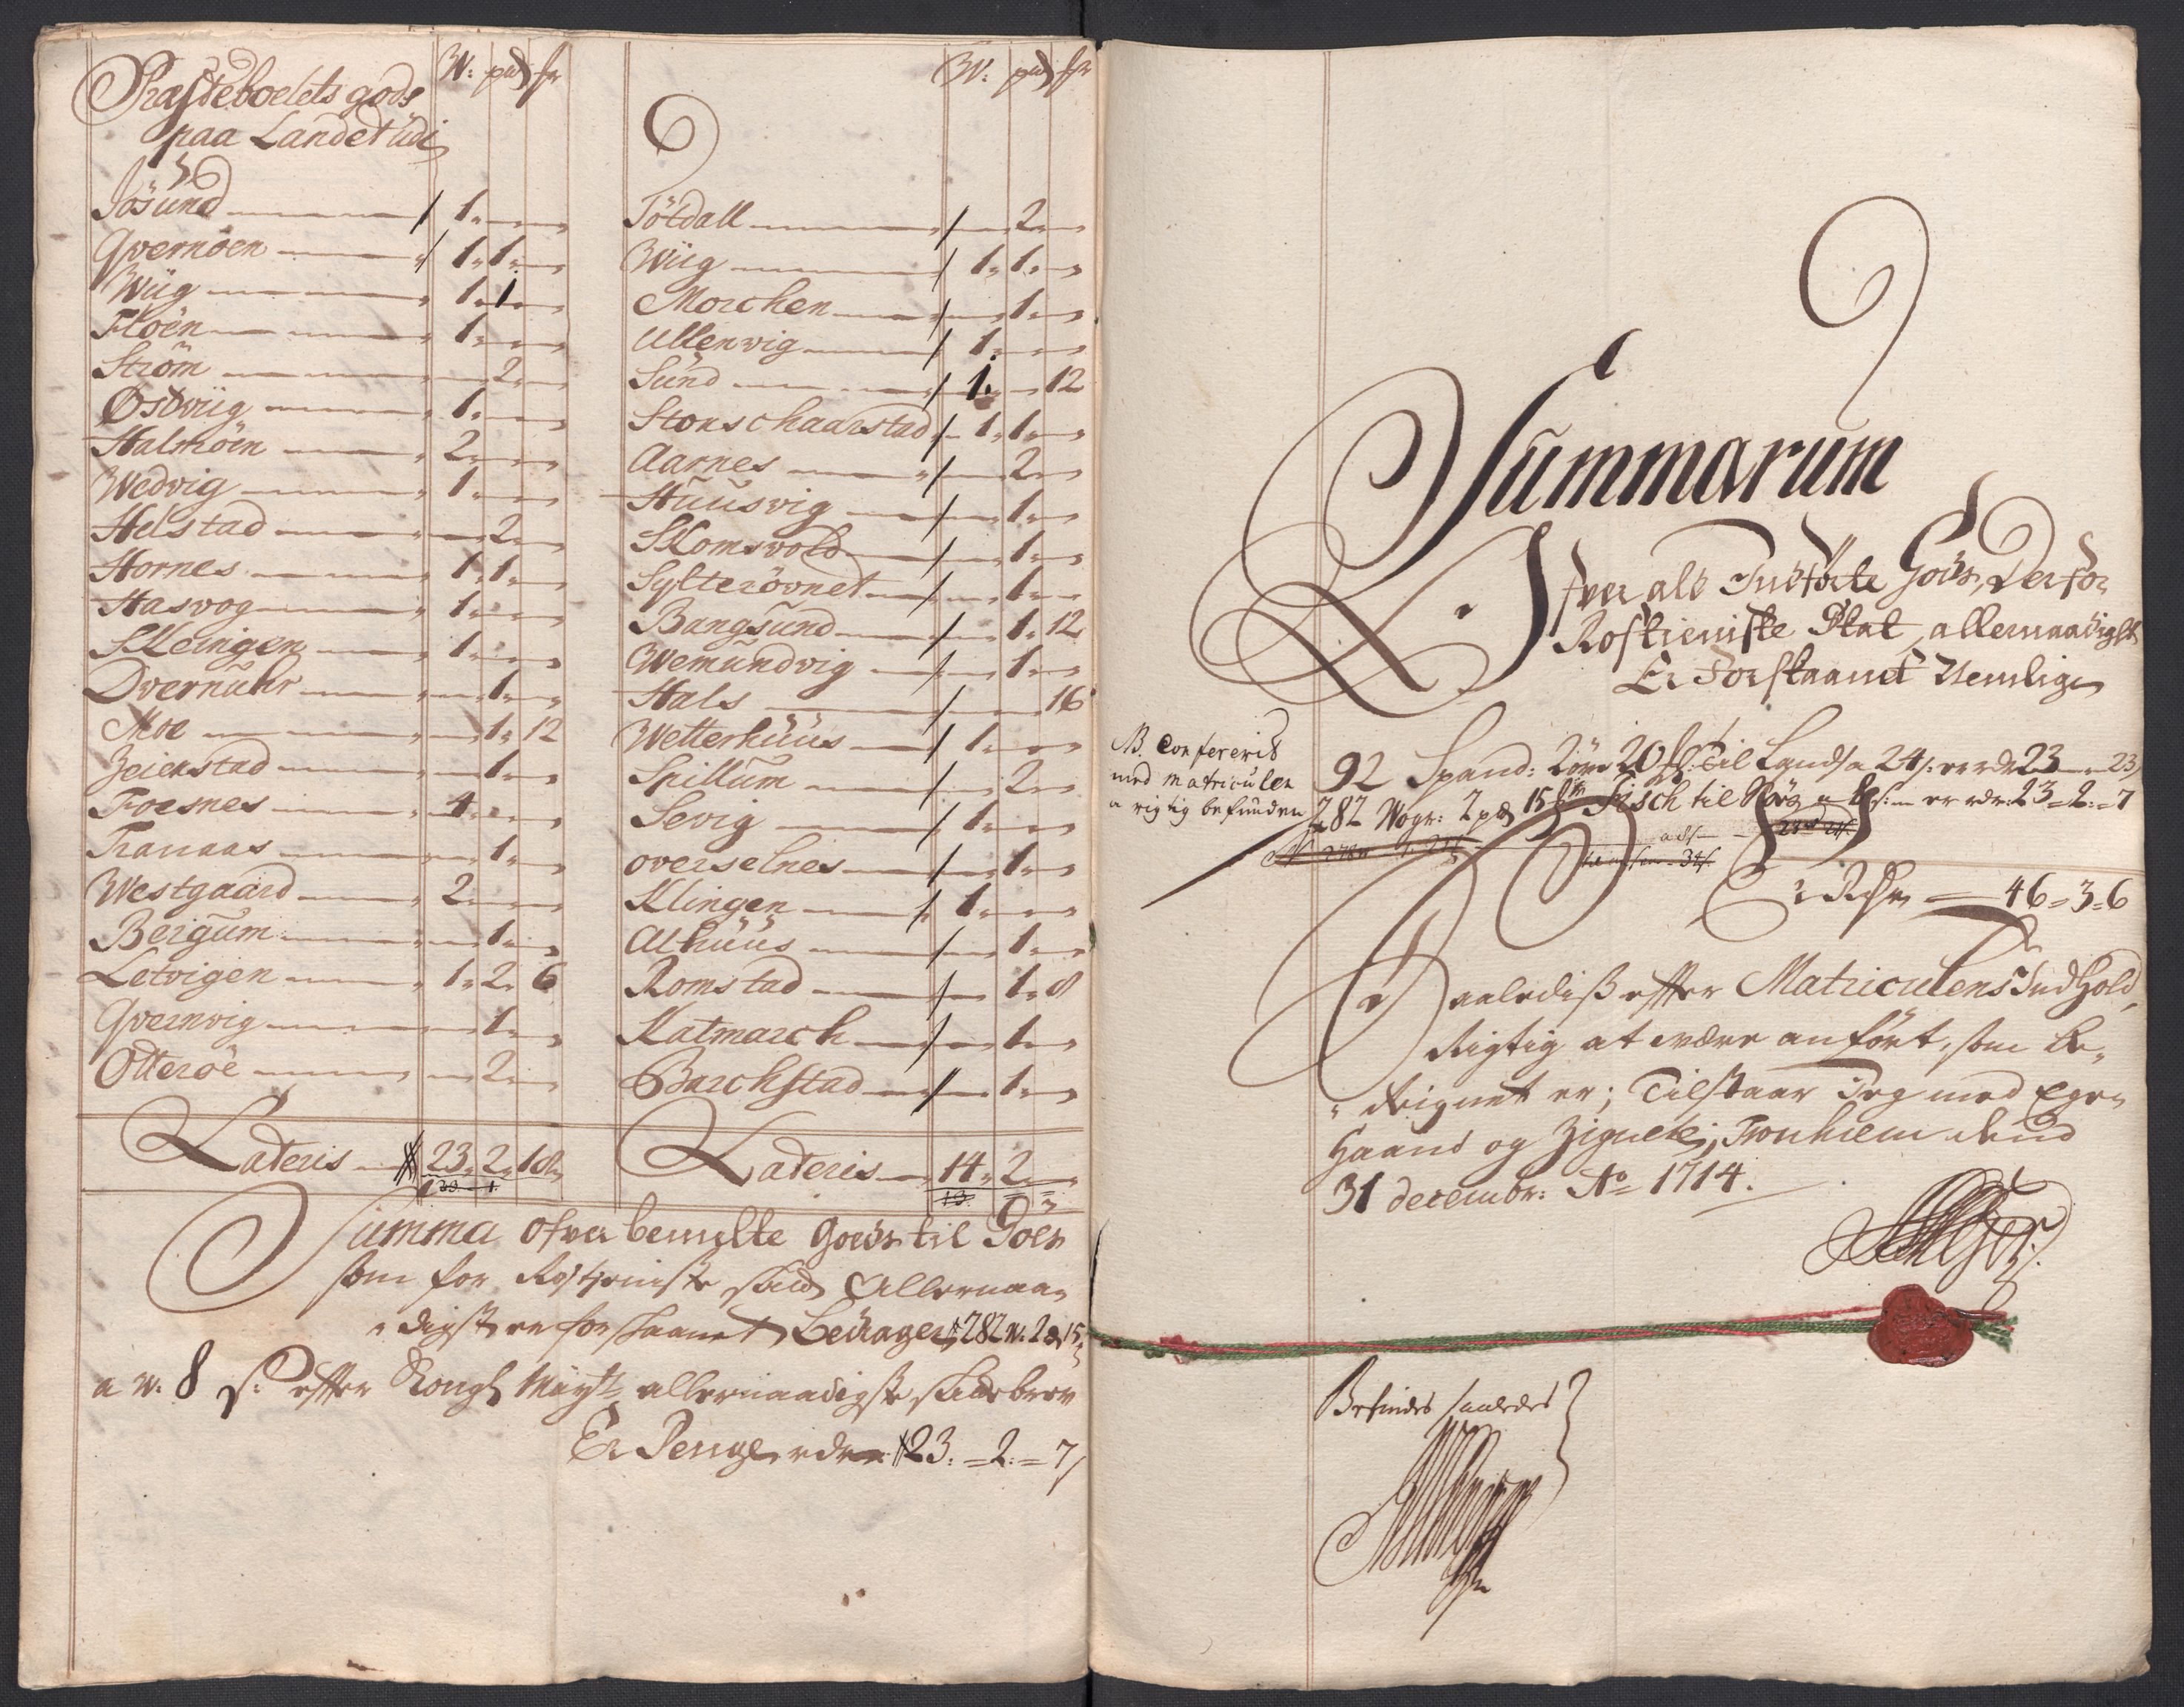 Præsteboelets gods W: pd fr
paa Landet udi
Jøsund 1
Qvernøen 1 1
Wiig 1 1
Floën 1
Strøm 2
Østviig 1
Halmøen 2
Wedvig 1
Helstad 2
Hornes 1 1
Hasvog 1
Skleingen 1
Dvernuhr 1
Moe 1 12
Zeierstad 1
Foesnes 4
Tranaas 1
Westgaard 2
Bergum 1
Letvigen 1 2 6
Qvernvig 1
Otterøe 2
Lateris 23 2 18
W: pd fr
Tøtdall 2
Wiig 1 1
Morchen 1
Ullenvig 1
Sund 1 12
Stonschaarstad 1 1
Aarnes 2
Huusvig 1
Sklomsvold 1
Sylterøvnet 1
Bangsund 1 12
Wemundvig 1
Hals 16
Wetterhuus 1
Spillum 2
Sevig 1
overselnes 1
Klingen 1
Alhuus 1
Romstad 1 8
Katmarch 1
Barchstad 1
Lateris 14 2
Summa ofver bemelte Goeds til Søes
som for Rostieniste allernaa
digst er forskaanet Bedrager 282 W: 2 15
a W: 8 s: efter Kongl Mayts allernaadigste brev
Er Penge rdr 23 = 2 = 7
Summarum
Ofver alt Indførte Goeds, Der for
Rostieniste Stat allernaadigst
Er Forskaanet Nemlig
NB. Confererit
med matriculen
a rigtig befunden
92 Spand: 2 øre 20 Til Lands a 24 s: er rdr 23 23
282 Wogr: 2 pd 15 Fisch til Søes a 8 s: er rdr: 23 = 2 = 7
Er Rdr 46 = 3 = 6
Saaledis efter Matriculens Indhold
Rigtig at være anført, som be-
reignet er; Tilstaar Jeg med Egen
Haand og Zignete; Tronhiem dend
31 decembr: Ao 1714.
Befindes saaledes